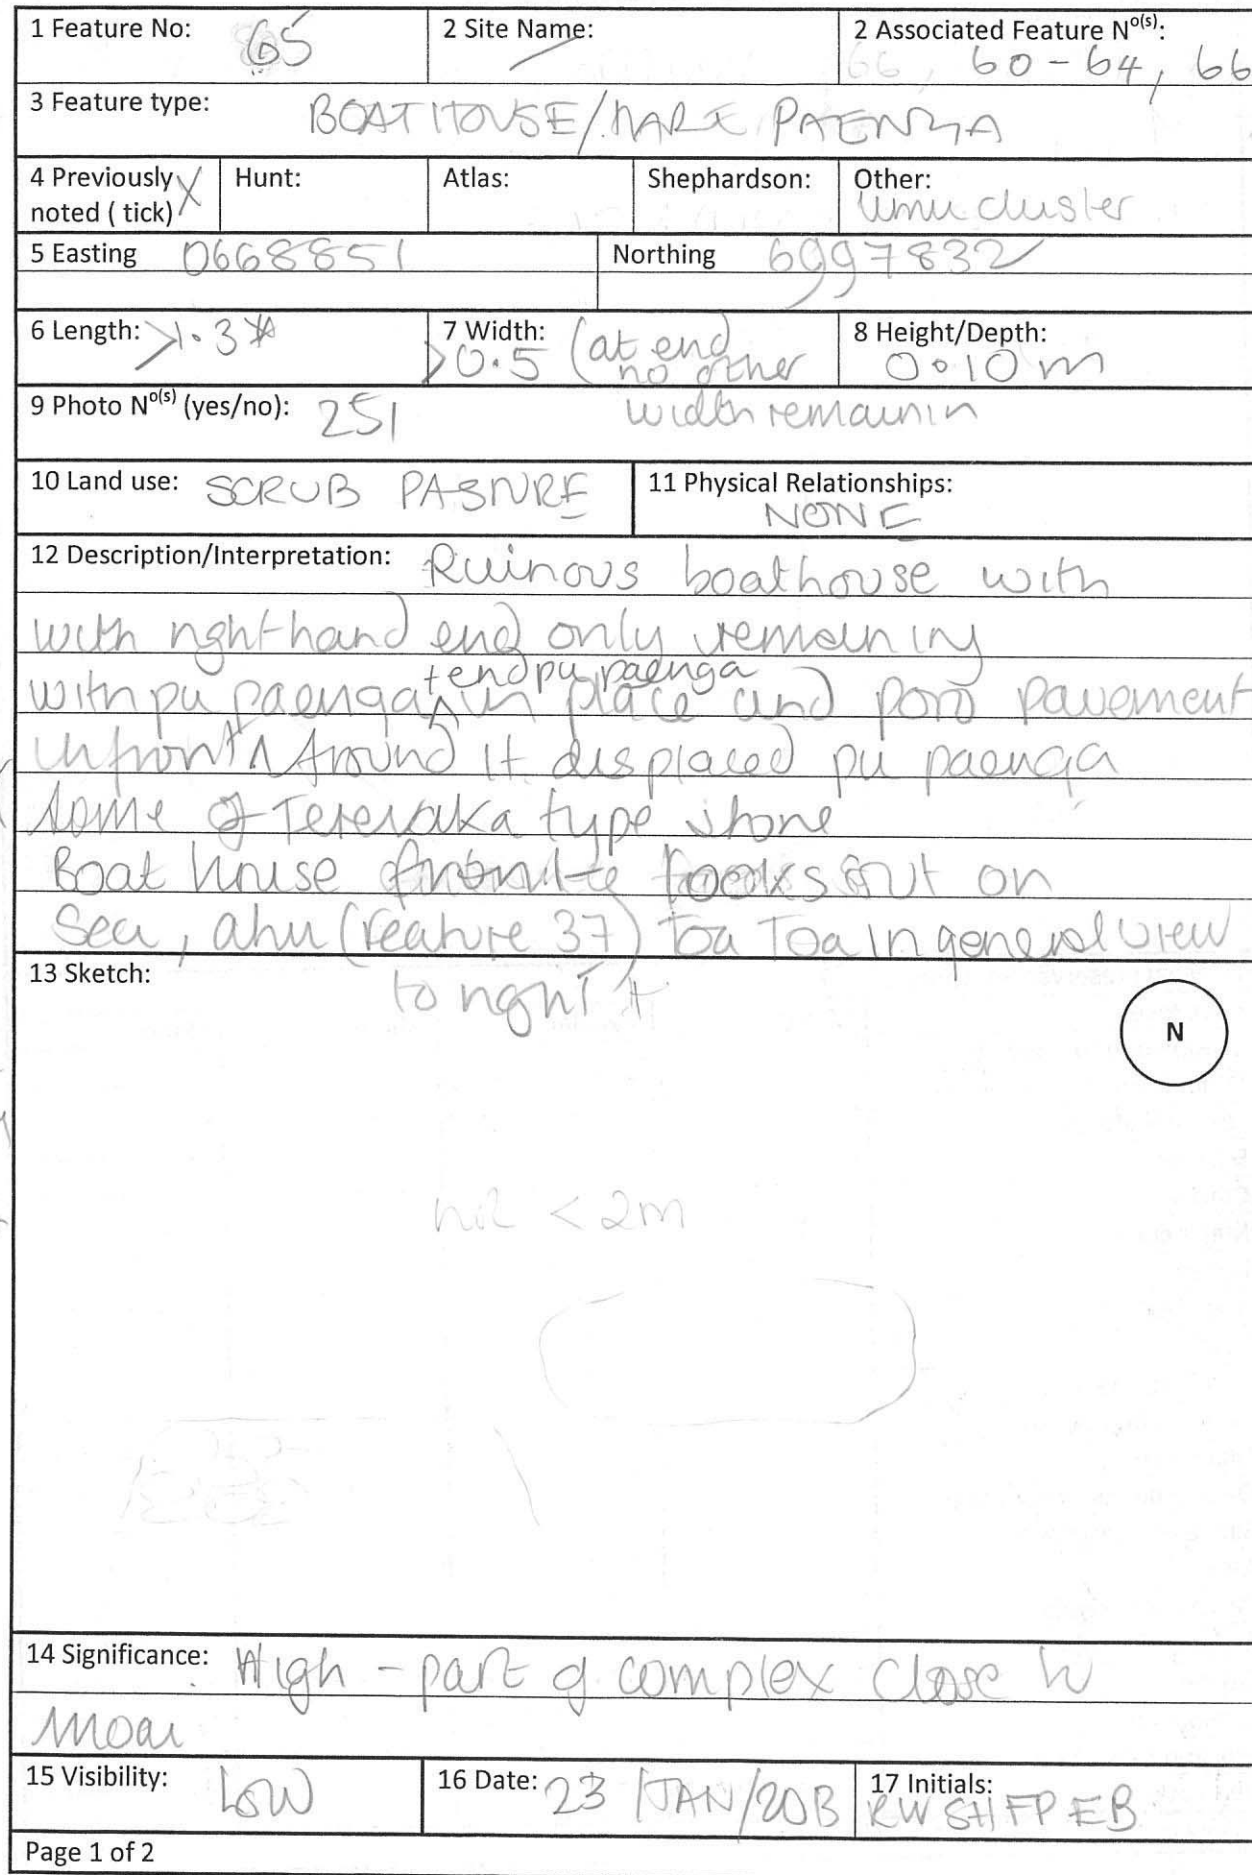 1 Feature No: 65 2 Site Name: / 2 Associated Feature No(s):
66, 60-64, 66
3 Feature type: BOATHOUSE/HARE PAENGA
4 Previously noted ( tick) X Hunt: Atlas: Shephardson: Other:
umu cluster
5 Easting 0668851 Northing 6997832
6 Length: >1.3 7 Width: >0.5 (at end 8 Height/Depth:
no other 0.10m
9 Photo No(s) (yes/no): 251 width remainin
10 Land use: SCRUB PASTURE 11 Physical Relationships:
NONE
12 Description/Interpretation: Ruinous boathouse with
with right-hand end only remaining
+end pu paenga
with pu paenga ^ in place and poro pavement
infront + around it. displaced pu paenga
some of Terevaka type stone
Boat house looks out on
Sea, ahu (feature 37) Toa Toa in general view
13 Sketch: to right +
N
nil <2m
14 Significance: High - part of complex close to
Moai
15 Visibility: LOW 16 Date: 23/JAN/2013 17 Initials:
RW SH FP EB
Page 1 of 2